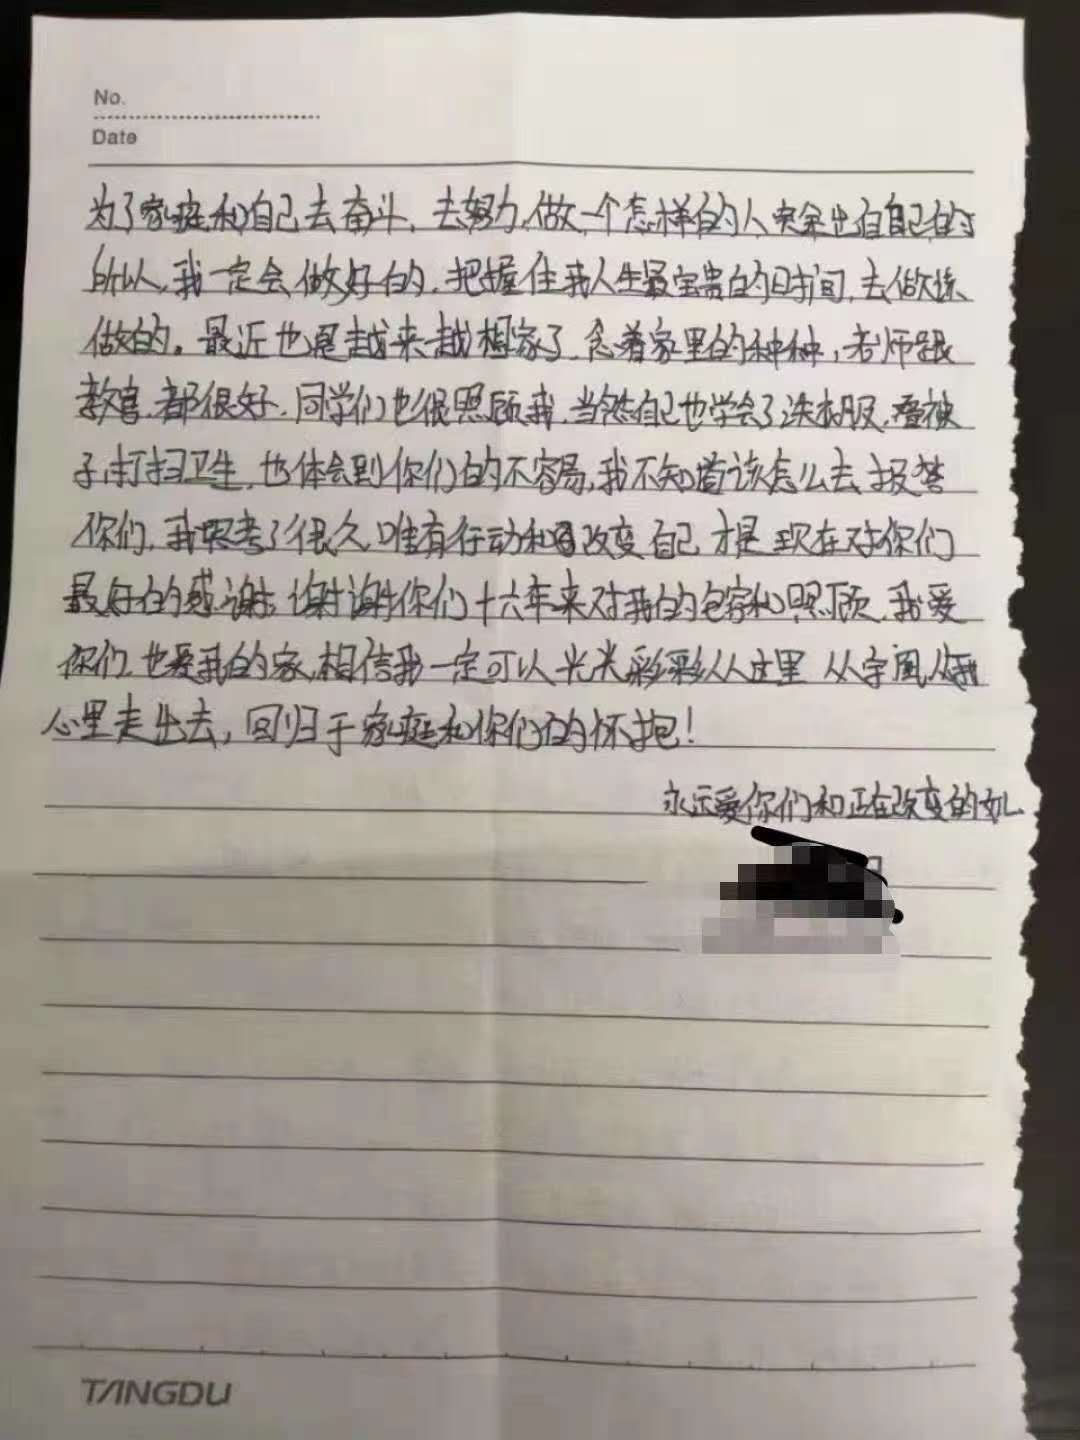 No.
Date
为了家庭和自己去奋斗、去努力,做一个怎样的人完全出自自己的
所以,我一定会做好的,把握住我人生最宝贵的时间,去做该
做的。最近也是越来越想家了,念着家里的种种,老师跟
教官都很好,同学们也很照顾我,当然自己也学会了洗衣服,叠被
子,打扫卫生,也体会到你们的不容易,我不知道该怎么去报答
你们,我思考了很久唯有行动和改变自己才是现在对你们
最好的感谢,谢谢你们十六年来对我的包容和照顾,我爱
你们也爱我的家,相信我一定可以光光彩彩从这里 从宇凰从我
心里走出去,回归于家庭和你们的怀抱!
永远爱你们和正在改变的
TANGDU